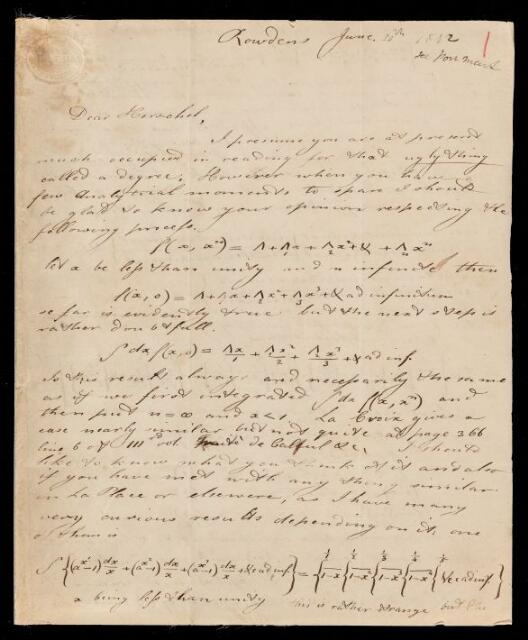 Rowdens June 20th 1812
see Post mark
Dear Herschel,
I presume you are at present
much occupied in reading for that ugly thing
called a degree. However when you have a
few Analytical moments to spare I should
be glad to know your opinion respecting the
following process.
f(x, xⁿ) = A + A₁x + A₂x² + & + Aₙxⁿ
let x be less than unity and n infinite then
f(x, 0) = A + A₁x + A₂x² + A₃x³ + & ad infinitum
so far is evidently true but the next step is
rather doubtfull.
∫dx f(x, 0) = Ax/1 + A₁x²/2 + A₂x³/3 + & ad inf.
Is this result always and necessarily the same
as if we first integrated ∫dx f(x, xⁿ) and
then put n = ∞ and x<1. La Croix gives a
case nearly similar but not quite at page 366
line 6 of IIIrd vol. de Calcul &c. I should
like to know what you think of it and also
if you have met with any thing similar
in La Place or elsewere, as I have many
very curious results depending on it, one
of them is
∫{(a^x - 1) dx/x + (a^x² - 1) dx/x + (a^x³ - 1) dx/x + & ad inf} = {1/(1-x)}{1/(1-x²)}{1/(1-x³)}{1/(1-x⁴)}{& ad inf
x being less than unity this is rather strange but